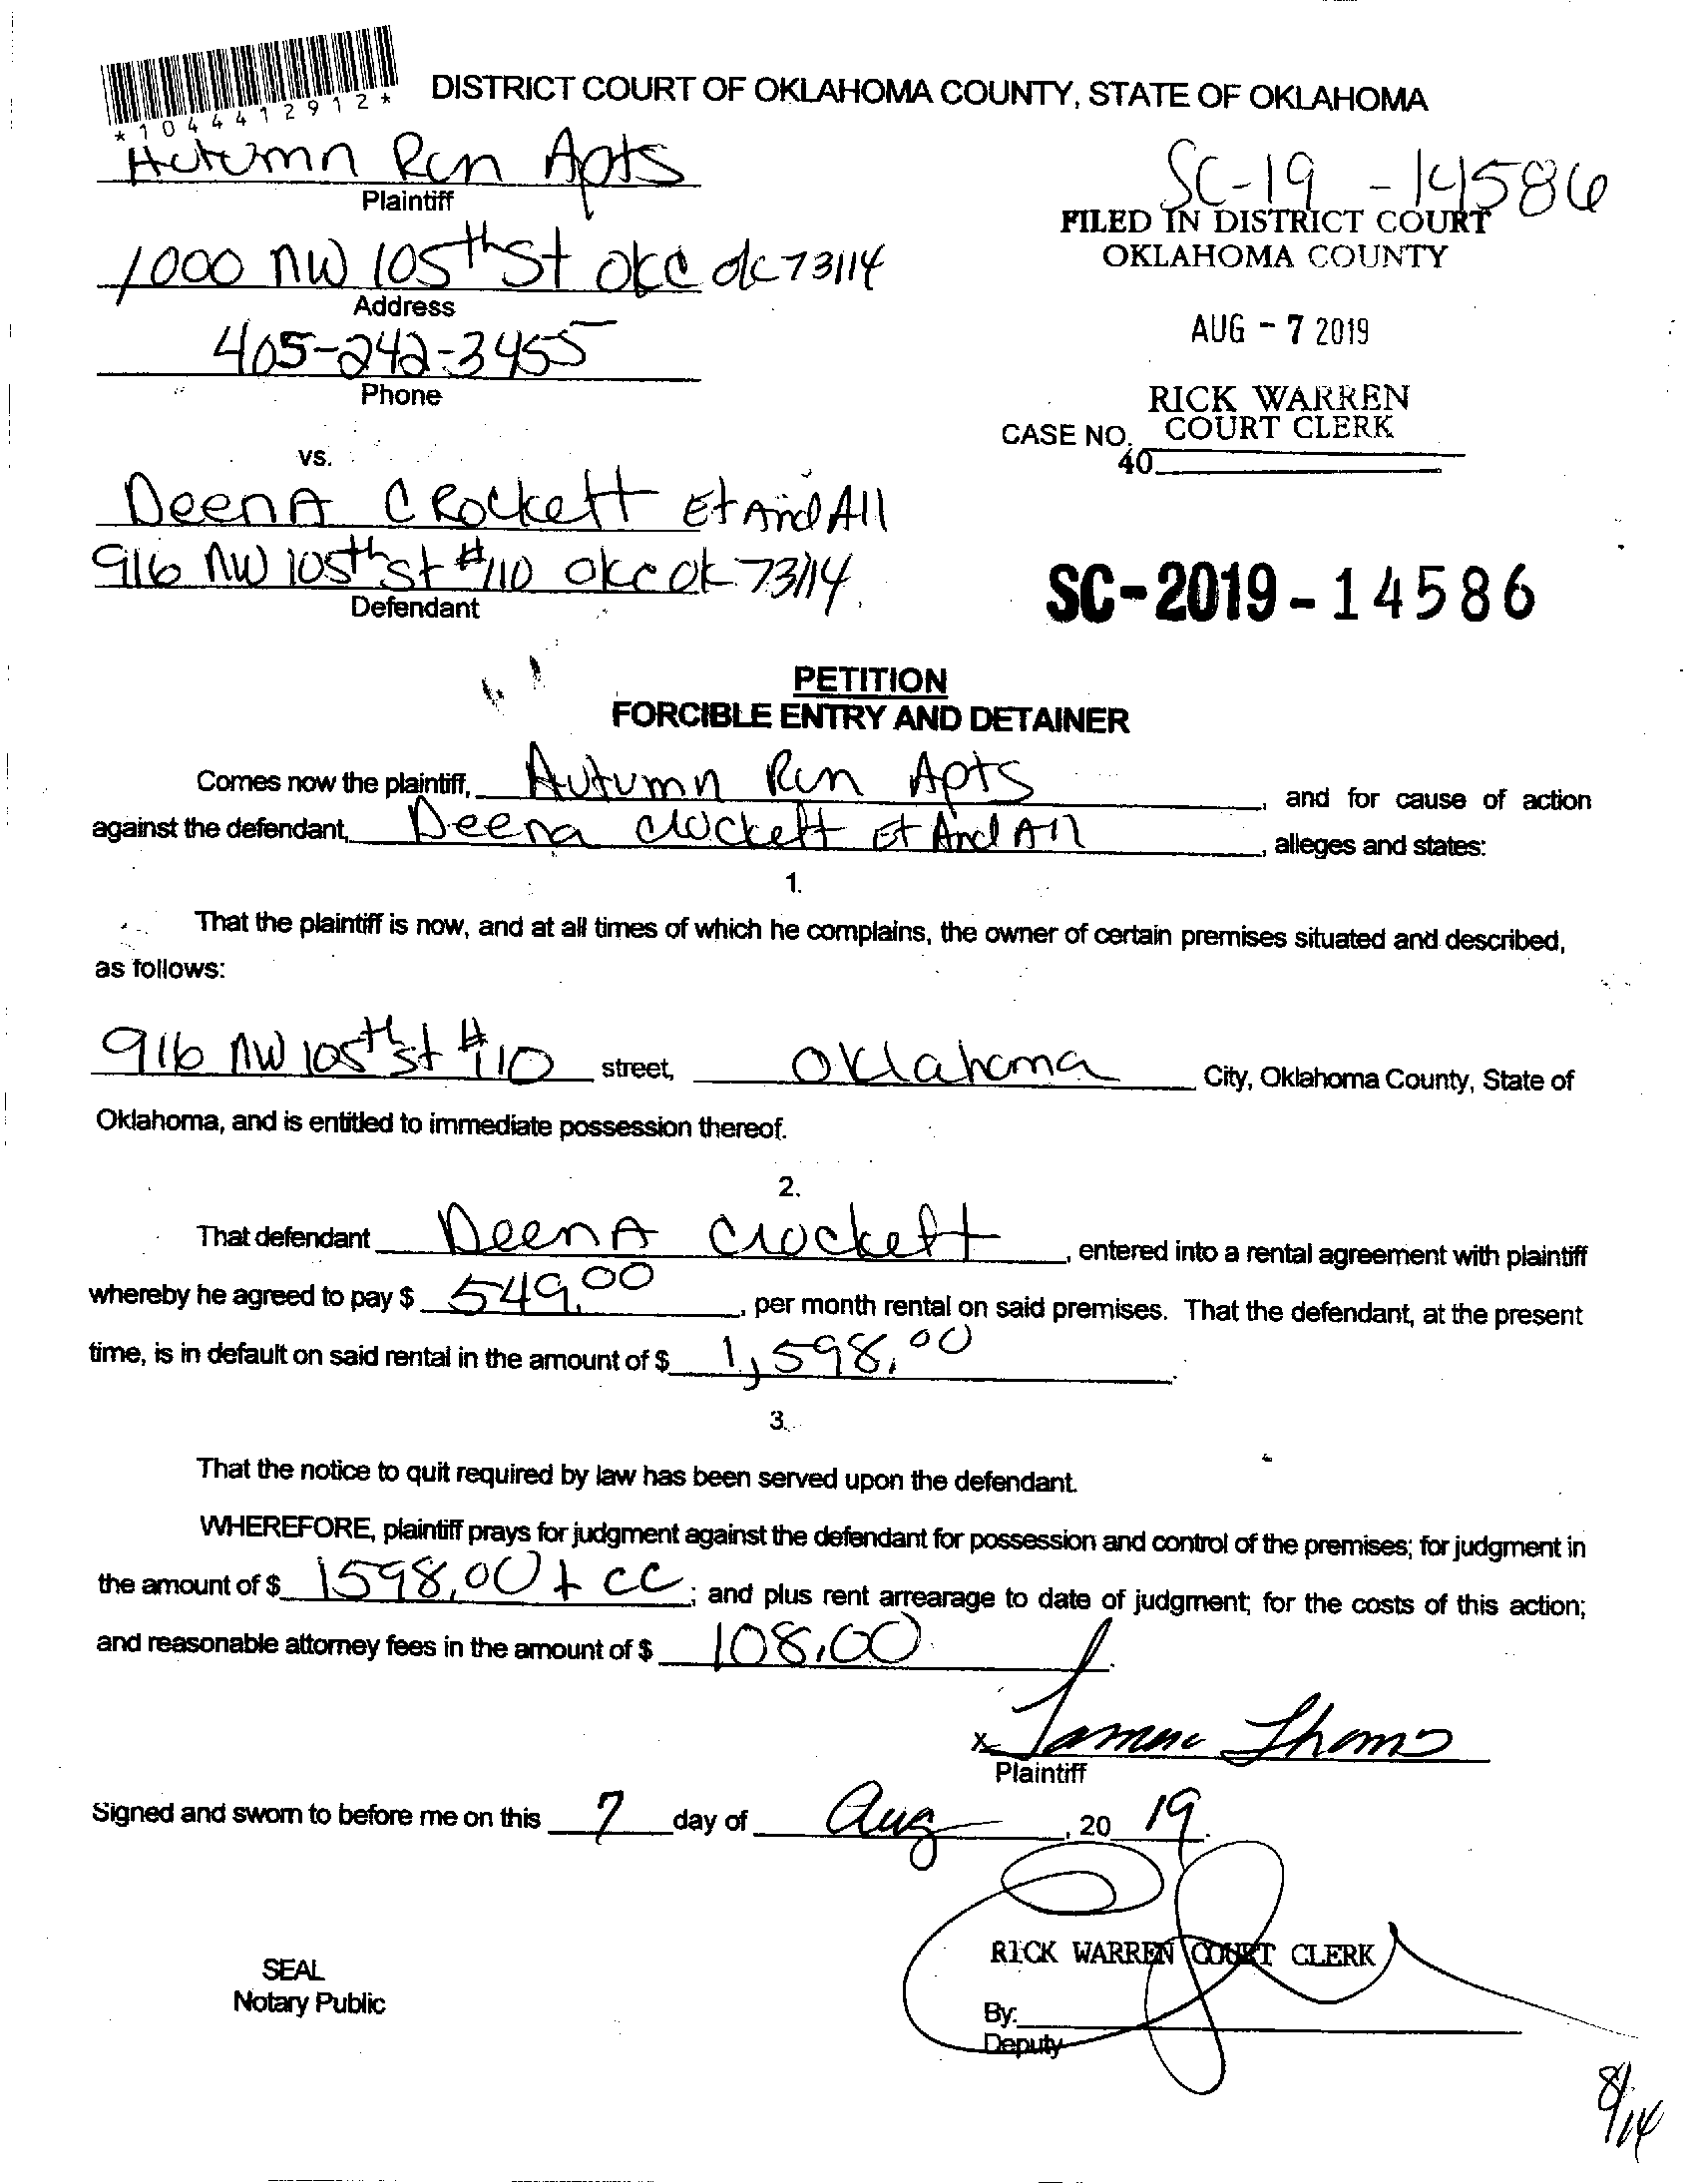 *1044412912*
DISTRICT COURT OF OKLAHOMA COUNTY, STATE OF OKLAHOMA
Autumn Run Apts
Plaintiff
SC-19 - 14586
FILED IN DISTRICT COURT
OKLAHOMA COUNTY
1000 NW 105th St OKC OK 73114
Address
AUG - 7 2019
405-242-3455
Phone
RICK WARREN
COURT CLERK
CASE NO.
40
vs.
DeenA CRockett Et And All
916 NW 105th St #110 OKC OK 73114
Defendant
SC-2019-14586
PETITION
FORCIBLE ENTRY AND DETAINER
Comes now the plaintiff, Autumn Run Apts, and for cause of action
against the defendant, Deena Crockett Et And All, alleges and states:
1.
That the plaintiff is now, and at all times of which he complains, the owner of certain premises situated and described,
as follows:
916 NW 105th St #110 street, Oklahoma City, Oklahoma County, State of
Oklahoma, and is entitled to immediate possession thereof.
2.
That defendant DeenA Crockett, entered into a rental agreement with plaintiff
whereby he agreed to pay $ 549.00, per month rental on said premises. That the defendant, at the present
time, is in default on said rental in the amount of $ 1,598.00.
3.
That the notice to quit required by law has been served upon the defendant.
WHEREFORE, plaintiff prays for judgment against the defendant for possession and control of the premises; for judgment in
the amount of $ 1598.00 + CC; and plus rent arrearage to date of judgment; for the costs of this action;
and reasonable attorney fees in the amount of $ 108.00.
x
Plaintiff
Signed and sworn to before me on this 7 day of Aug, 20 19.
RICK WARREN COURT CLERK
SEAL
Notary Public
By:
Deputy
8/14